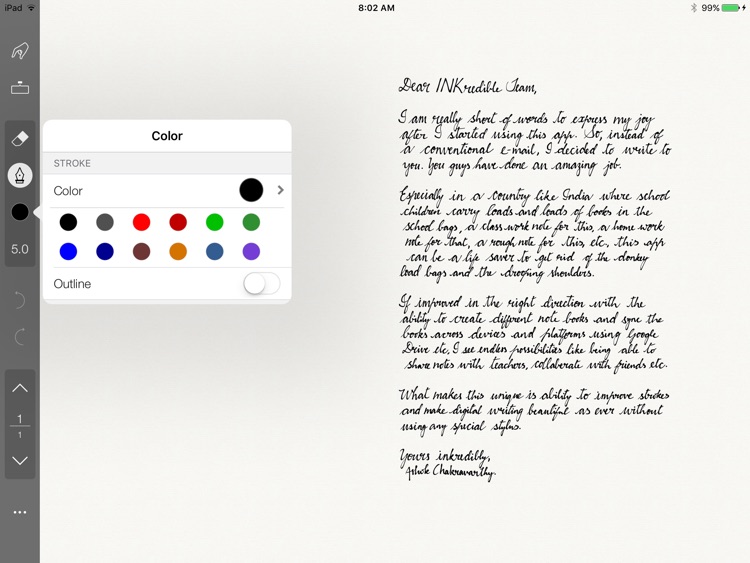 iPad
8:02 AM
99%
Color
STROKE
Color
Outline
5.0
1
1
Dear INKredible Team,
I am really short of words to express my joy
after I started using this app. So, instead of
a conventional e-mail, I decided to write to
you. You guys have done an amazing job.
Especially in a country like India where school
children carry loads and loads of books in the
school bags, a class work note for this, a home work
note for that, a rough note for this, etc, this app
can be a life saver to get rid of the donkey
load bags and the drooping shoulders.
If improved in the right direction with the
ability to create different note books and sync the
books across devices and platforms using Google
Drive etc, I see endless possibilities like being able to
share notes with teachers, collaborate with friends etc.
What makes this unique is ability to improve strokes
and make digital writing beautiful as ever without
using any special stylus.
Yours inkredibly,
Ashok Chakravarthy.